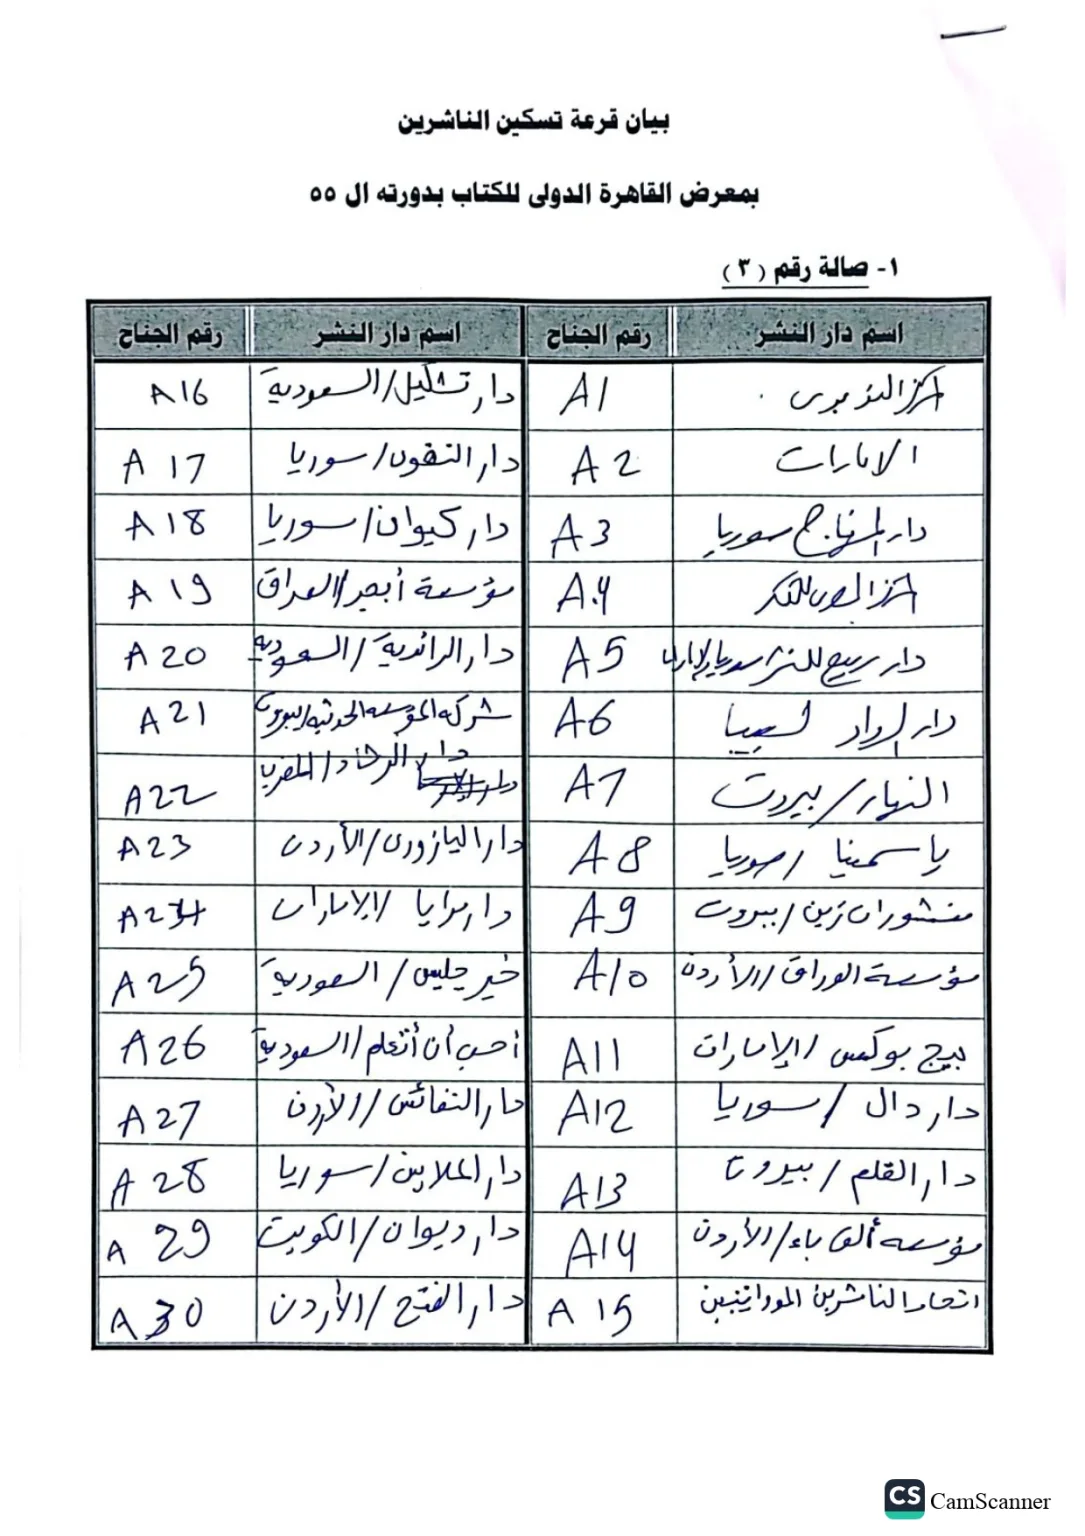 بيان قرعة تسكين الناشرين
بمعرض القاهرة الدولى للكتاب بدورته ال ٥٥
١- صالة رقم (٣)
اسم دار النشر رقم الجناح اسم دار النشر رقم الجناح
A1 دار تشكيل/السعودية A16
الامارات A2 دار التقوى/سوريا A17
دار المنهاج سوريا A3 دار كيوان/سوريا A18
A4 مؤسسة أبجد/العراق A19
دار ربيع للنشر سوريا/الإمارات A5 دار الرائدية/السعودية A20
دار الرواد ليبيا A6 شركه المؤسسه الحديثه/بيروت A21
النهار/بيروت A7 دار الرشاد/المغرب A22
ياسمينا/سوريا A8 دار اليازورى/الأردن A23
منشورات زين/بيروت A9 دار مرايا/الإمارات A24
مؤسسة الوراق/الأردن A10 خير جليس/السعودية A25
بيج بوكس/الإمارات A11 أحب أن أتعلم/السعودية A26
دار دال/سوريا A12 دار النفائس/الأردن A27
دار القلم/بيروت A13 دار الملايين/سوريا A28
مؤسسه ألف باء/الأردن A14 دار ديوان/الكويت A29
اتحاد الناشرين A15 دار الفتح/الأردن A30
CS CamScanner